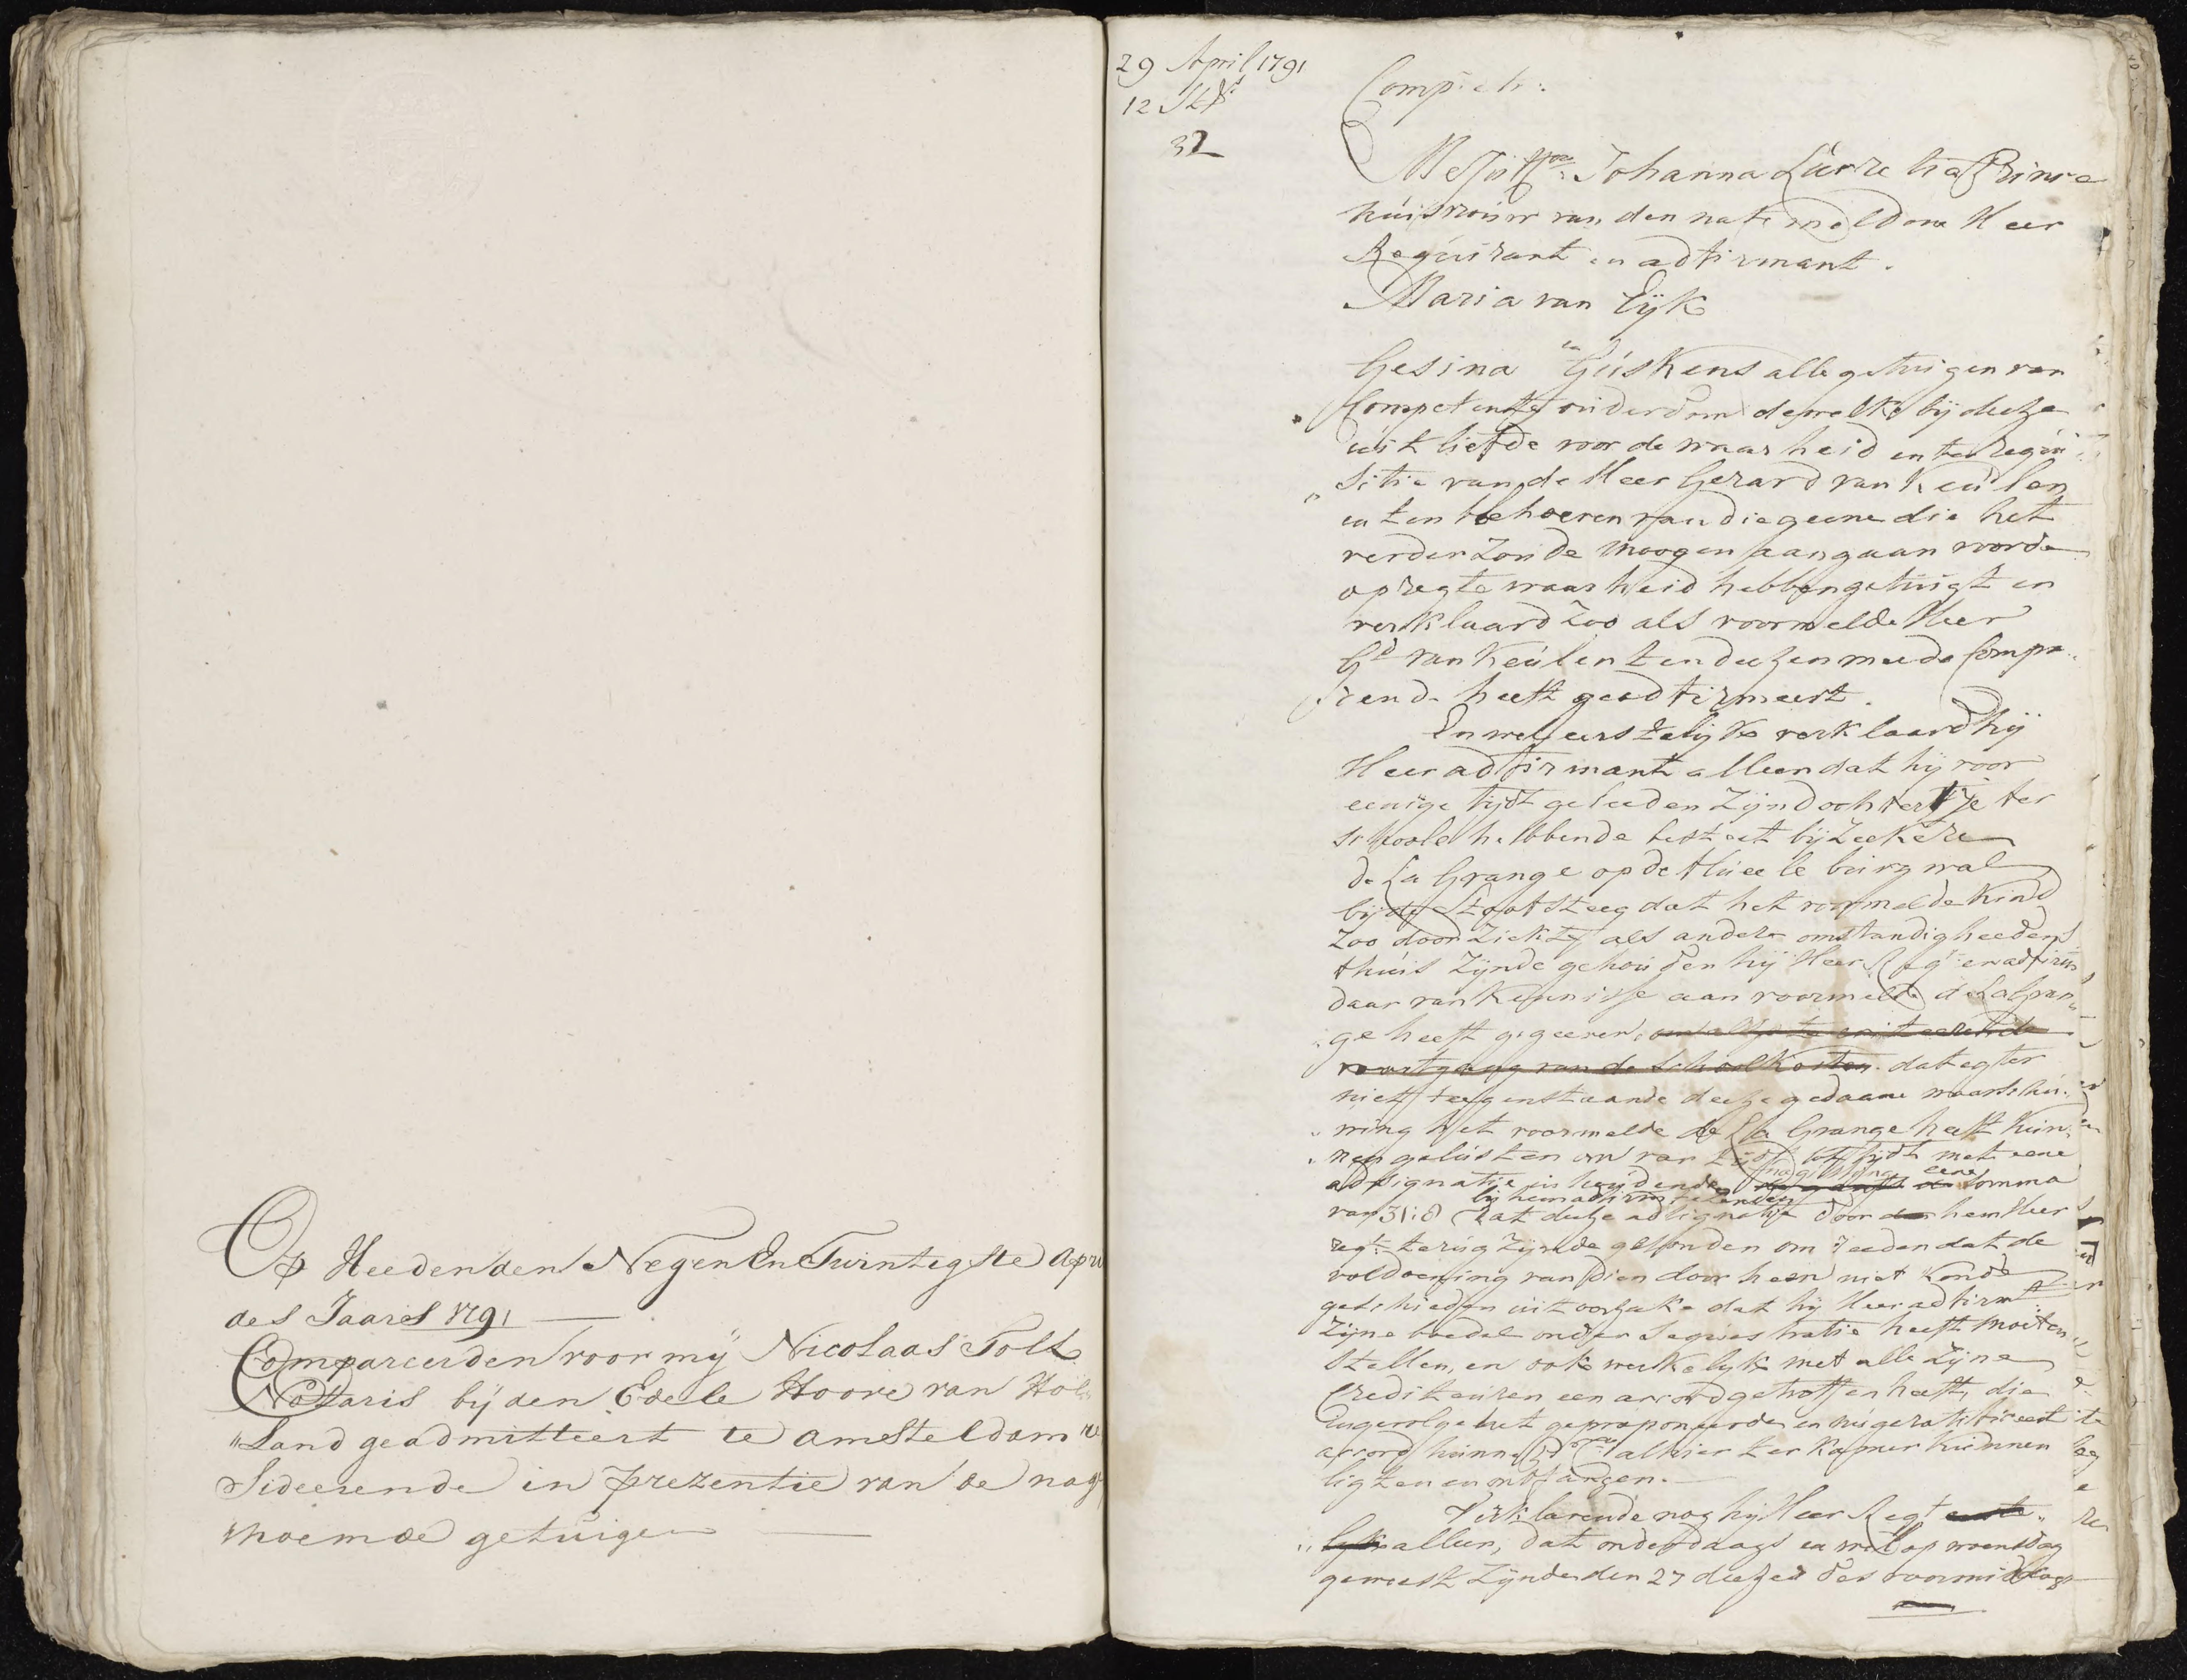 Op Heeden den Negen En Twintigste Apri
des Jaares 1791
Compareerden voor mij Nicolaas Tolk
Notaris bij den Edele Hoove van Hol
"Land geadmitteert te Amsteldam re
Sideerende in prezentie van de nag
"noemde getuigen
29 April 1791
12 St
32
Comp
Johanna
huisvrouw van den natemeldene Heer
Requirant en adfirmant.
Maria van Eijk
en
Gesina Guskens alle getuigen van
Competente ouderdom dewelke bij deeze
uit liefde voor de waarheid en ter requi
sitie van de Heer Gerard van Keulen
en ten behoeren van diegeene die het
verder zoude moogen aangaan voor de
opregte waarheid hebben getuigt en
verklaard zoo als voormelde Heer
Gd van Keulen ten deezen meede Compa
reende heeft geadfirmeert.
En wel eerstelijke verklaard hij
Heer adfirmant alleen dat hij voor
eenige tijdt geleeden zijn dochtertje ter
schoole hebbende besteet bij zeekere
de La Grange op de Fluweele burgwal
bij de Stoofsteeg dat het voormelde kind
zoo door ziekte als andere omstandigheeden
thuis zijnde gehouden hij Heer Reqt en adfirm
daar van kennisse aan voormelde de La Gran
ge heeft gegeeven,
voortgang van de schoolkosten. dat egter
niet teegenstaande deeze gedaane waarschu
wing het voormelde de La Grange heeft kun
nen gelusten om van tijdt tot tijdt met eene
adsignatie inhoudende eene somma
bij hem adfirmt te zenden
van 31:8 dat deeze adsignatie door hem Heer
reqt terug zijnde gesonden om reeden dat de
voldoening van dien door hem niet konde
geschieden uit oorzake dat hij Heer adfirmt
zijne boedel onder Sequestratie heeft moeten
stellen, en ook werkelijk met alle zijne
Crediteuren een accord getroffen heeft, die
ingevolge het geproponeerde en nu geratificeert
accord hunne alhier ter kamer kunnen
ligten en ontfangen.
Verklarende nog hij Heer Reqt eerste
lijk alleen, dat onderdaags en wel op woensdag
geweest zijnde den 27 deezer des voormiddags